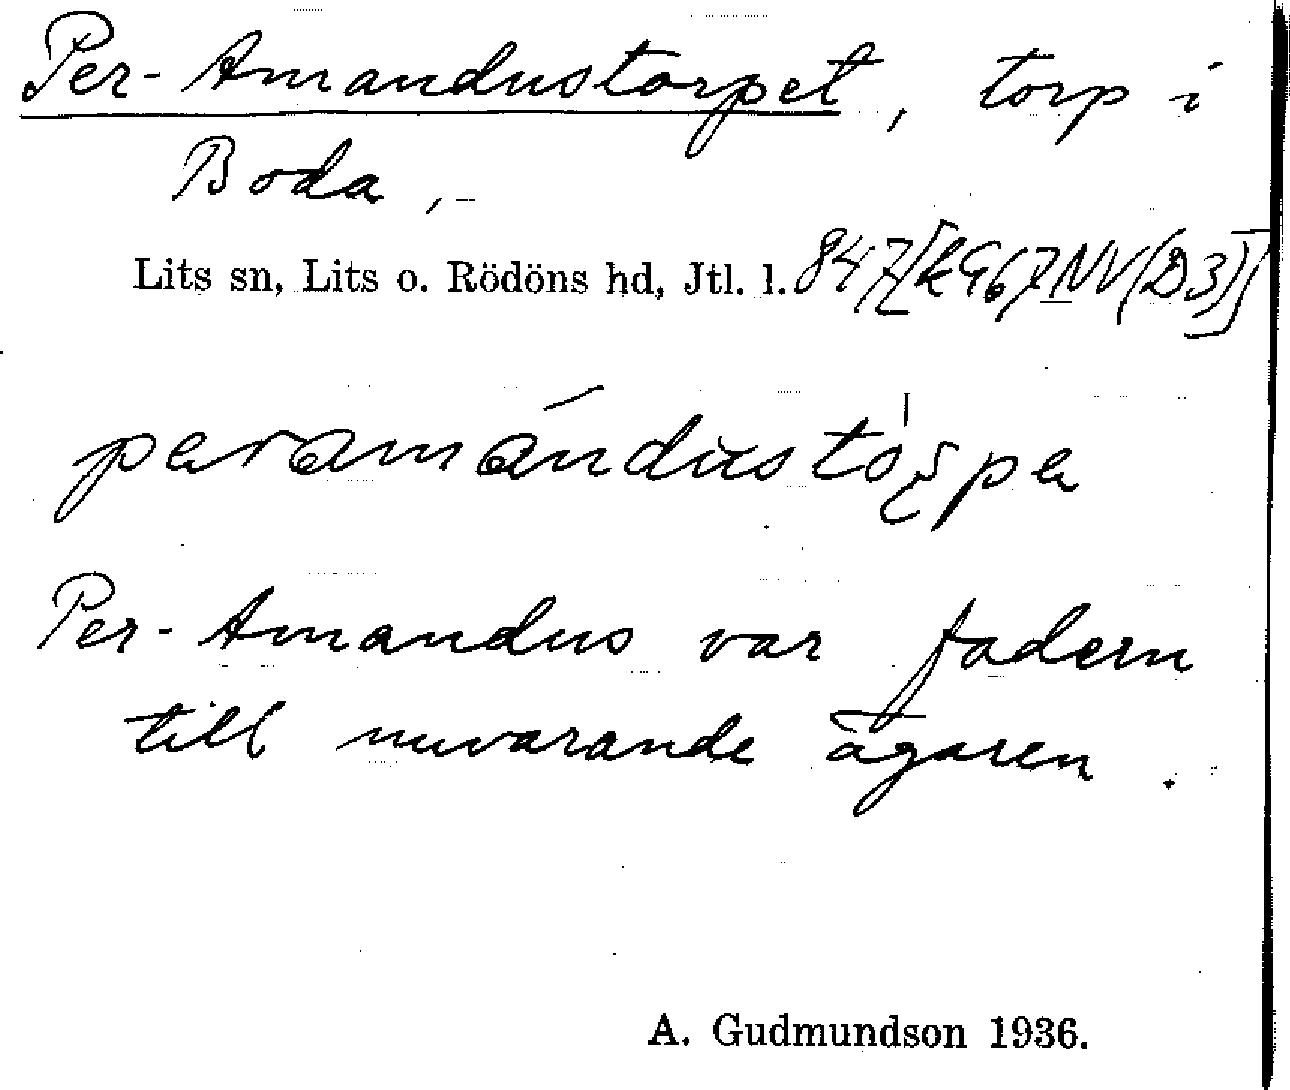 Per-Amandustorpet, torp i
Boda,-
Lits sn, Lits o. Rödöns hd, Jtl. l. 847/[EG67NV(D3)]
peramándustórpe
Per-Amandus var fadern
till nuvarande ägaren.
A. Gudmundson 1936.